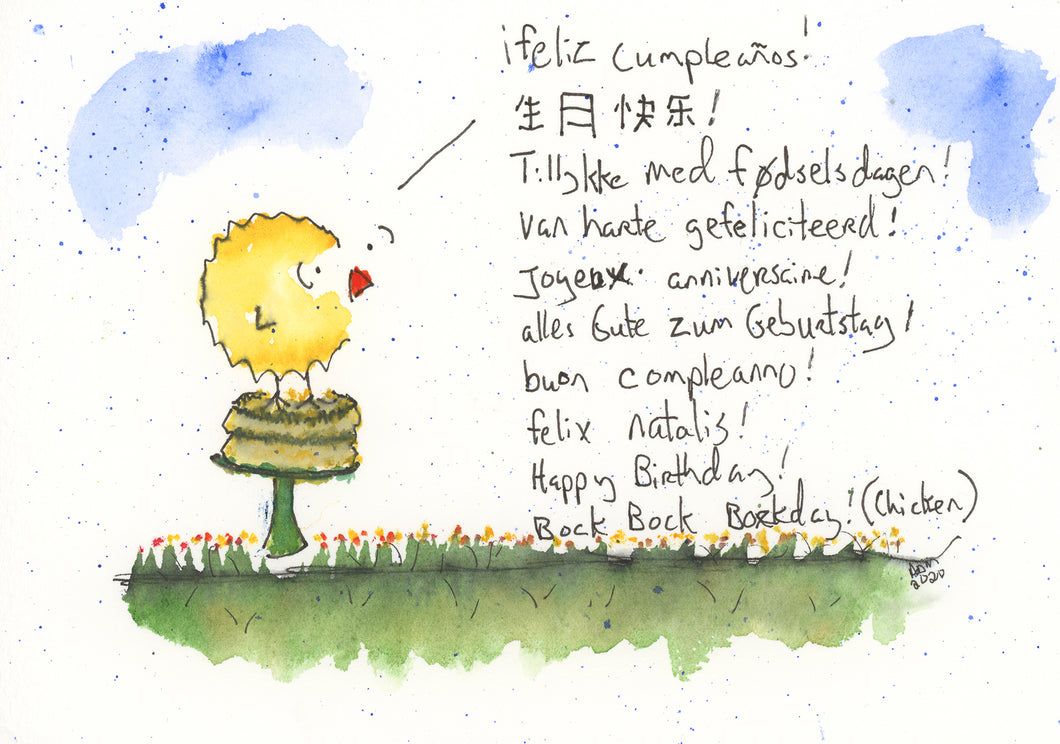 ¡feliz cumpleaños!
生日快乐!
Tillykke med fødselsdagen!
van harte gefeliciteerd!
Joyeux anniversaire!
alles Gute zum Geburtstag!
buon compleanno!
felix natalis!
Happy Birthday!
Bock Bock Bockday! (Chicken)
ADM
2020